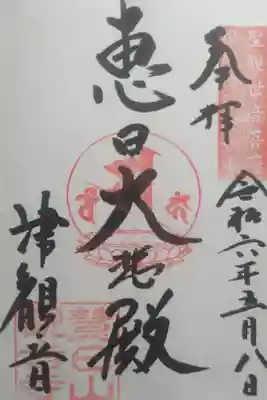 奉拝
令和六年五月八日
恵日大悲殿
津観音
聖観世音菩